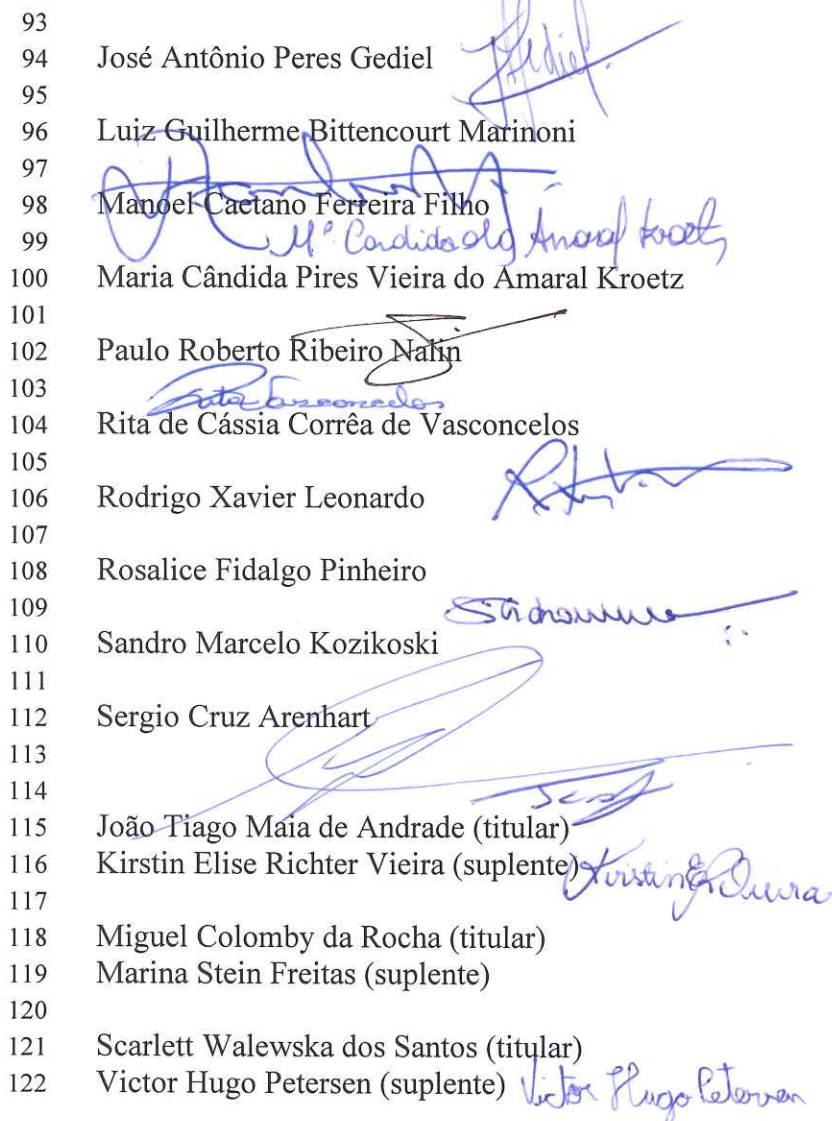 93
94 José Antônio Peres Gediel
Gediel
95
96 Luiz Guilherme Bittencourt Marinoni
97
98 Manoel Caetano Ferreira Filho
99 Mª Candida do Amaral Kroetz
100 Maria Cândida Pires Vieira do Amaral Kroetz
101
102 Paulo Roberto Ribeiro Nalin
103 Rita Vasconcelos
104 Rita de Cássia Corrêa de Vasconcelos
105
106 Rodrigo Xavier Leonardo
107
108 Rosalice Fidalgo Pinheiro
109
110 Sandro Marcelo Kozikoski
111
112 Sergio Cruz Arenhart
113
114
115 João Tiago Maia de Andrade (titular)
116 Kirstin Elise Richter Vieira (suplente) Kirstin E R Vieira
117
118 Miguel Colomby da Rocha (titular)
119 Marina Stein Freitas (suplente)
120
121 Scarlett Walewska dos Santos (titular)
122 Victor Hugo Petersen (suplente) Victor Hugo Petersen